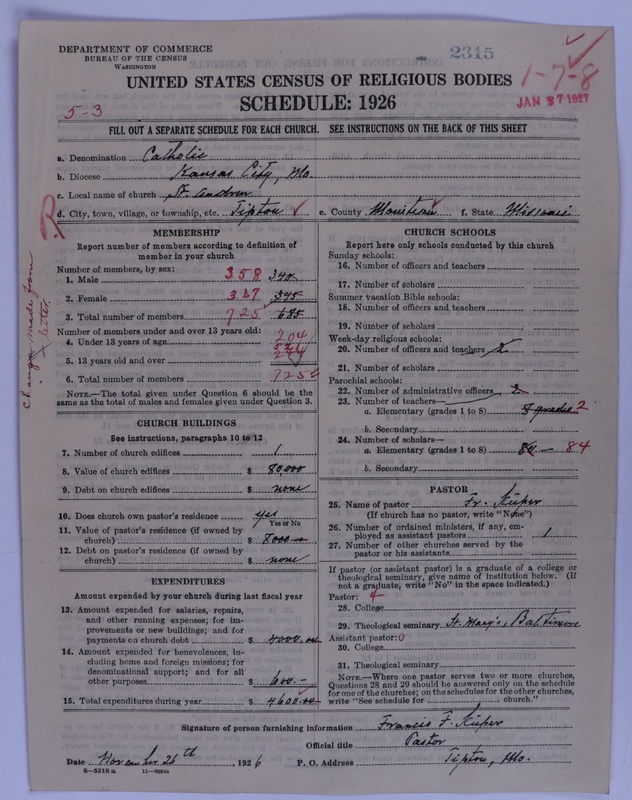 DEPARTMENT OF COMMERCE
BUREAU OF THE CENSUS
WASHINGTON
2315
UNITED STATES CENSUS OF RELIGIOUS BODIES
1-7-8
SCHEDULE: 1926
JAN 27 1927
5-3
FILL OUT A SEPARATE SCHEDULE FOR EACH CHURCH. SEE INSTRUCTIONS ON THE BACK OF THIS SHEET
a. Denomination Catholic
b. Diocese Kansas City, Mo
c. Local name of church St. Andrew
d. City, town, village, or township, etc. Tipton e. County Moniteau f. State Missouri
Change made from letter
MEMBERSHIP
Report number of members according to definition of
member in your church
Number of members, by sex:
1. Male 358 340
2. Female 367 345
3. Total number of members 725 685
Number of members under and over 13 years old:
4. Under 13 years of age 204
5. 13 years old and over
6. Total number of members 725
NOTE.—The total given under Question 6 should be
same as the total of males and females given under Question 3.
CHURCH BUILDINGS
See instructions, paragraphs 10 to 12
7. Number of church edifices 1
8. Value of church edifices $ 80,000
9. Debt on church edifices $ none
10. Does church own pastor's residence yes
Yes or No
11. Value of pastor's residence (if owned by
church) $ 8000
12. Debt on pastor's residence (if owned by
church) $ none
EXPENDITURES
Amount expended by your church during last fiscal year
13. Amount expended for salaries, repairs,
and other running expenses; for im-
provements or new buildings; and for
payments on church debt $ 4000.00
14. Amount expended for benevolences, in-
cluding home and foreign missions; for
denominational support; and for all
other purposes $ 600.—
15. Total expenditures during year $ 4600.00
CHURCH SCHOOLS
Report here only schools conducted by this church
Sunday schools:
16. Number of officers and teachers
17. Number of scholars
Summer vacation Bible schools:
18. Number of officers and teachers
19. Number of scholars
Week-day religious schools:
20. Number of officers and teachers 2
21. Number of scholars
Parochial schools:
22. Number of administrative officers 2
23. Number of teachers—
a. Elementary (grades 1 to 8) 8 grades 2
b. Secondary
24. Number of scholars—
a. Elementary (grades 1 to 8) 84 — 84
b. Secondary
PASTOR
25. Name of pastor Fr. Kuper
(If church has no pastor, write "None")
26. Number of ordained ministers, if any, em-
ployed as assistant pastors 1
27. Number of other churches served by the
pastor or his assistants
If pastor (or assistant pastor) is a graduate of a college or
theological seminary, give name of institution below. (If
not a graduate, write "No" in the space indicated.)
Pastor: 4
28. College
29. Theological seminary St. Mary's, Baltimore
Assistant pastor: 0
30. College
31. Theological seminary
NOTE.—Where one pastor serves two or more churches,
Questions 28 and 29 should be answered only on the schedule
for one of the churches; on the schedules for the other churches,
write "See schedule for church."
Signature of person furnishing information Francis F. Kuper
Official title Pastor
Date November 26th, 1926 P. O. Address Tipton, Mo.
8-5518a